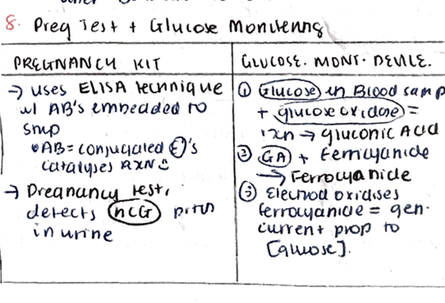 8. Preg Test + Glucose Monitering
PREGNANCY KIT
→ uses ELISA technique
w/ AB's embeaded to
strip
• AB = conjugated E's
catalyses RXNs
→ Pregnancy test,
detects hCG
in urine
GLUCOSE. MONT. DEVICE.
① Glucose in Blood samp
+ glucose oxidase =
rxn → gluconic Acid
② GA + Ferricyanide
→ Ferrocyanide
③ Electrod oxidises
ferrocyanide = gen.
current prop to
[glucose].